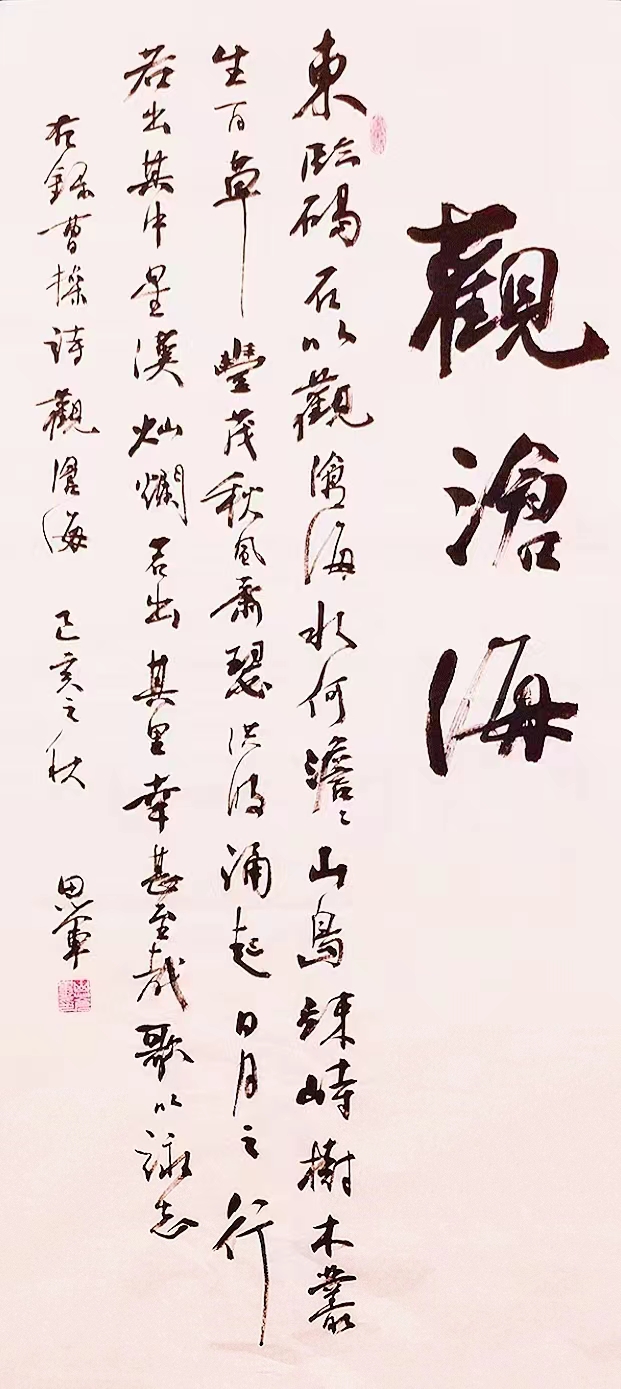 觀滄海
東臨碣石以觀滄海水何澹〻山島竦峙樹木叢
生百草豐茂秋風蕭瑟洪波涌起日月之行
若出其中星漢燦爛若出其里幸甚至哉歌以詠志
右錄曹操詩觀滄海 己亥之秋